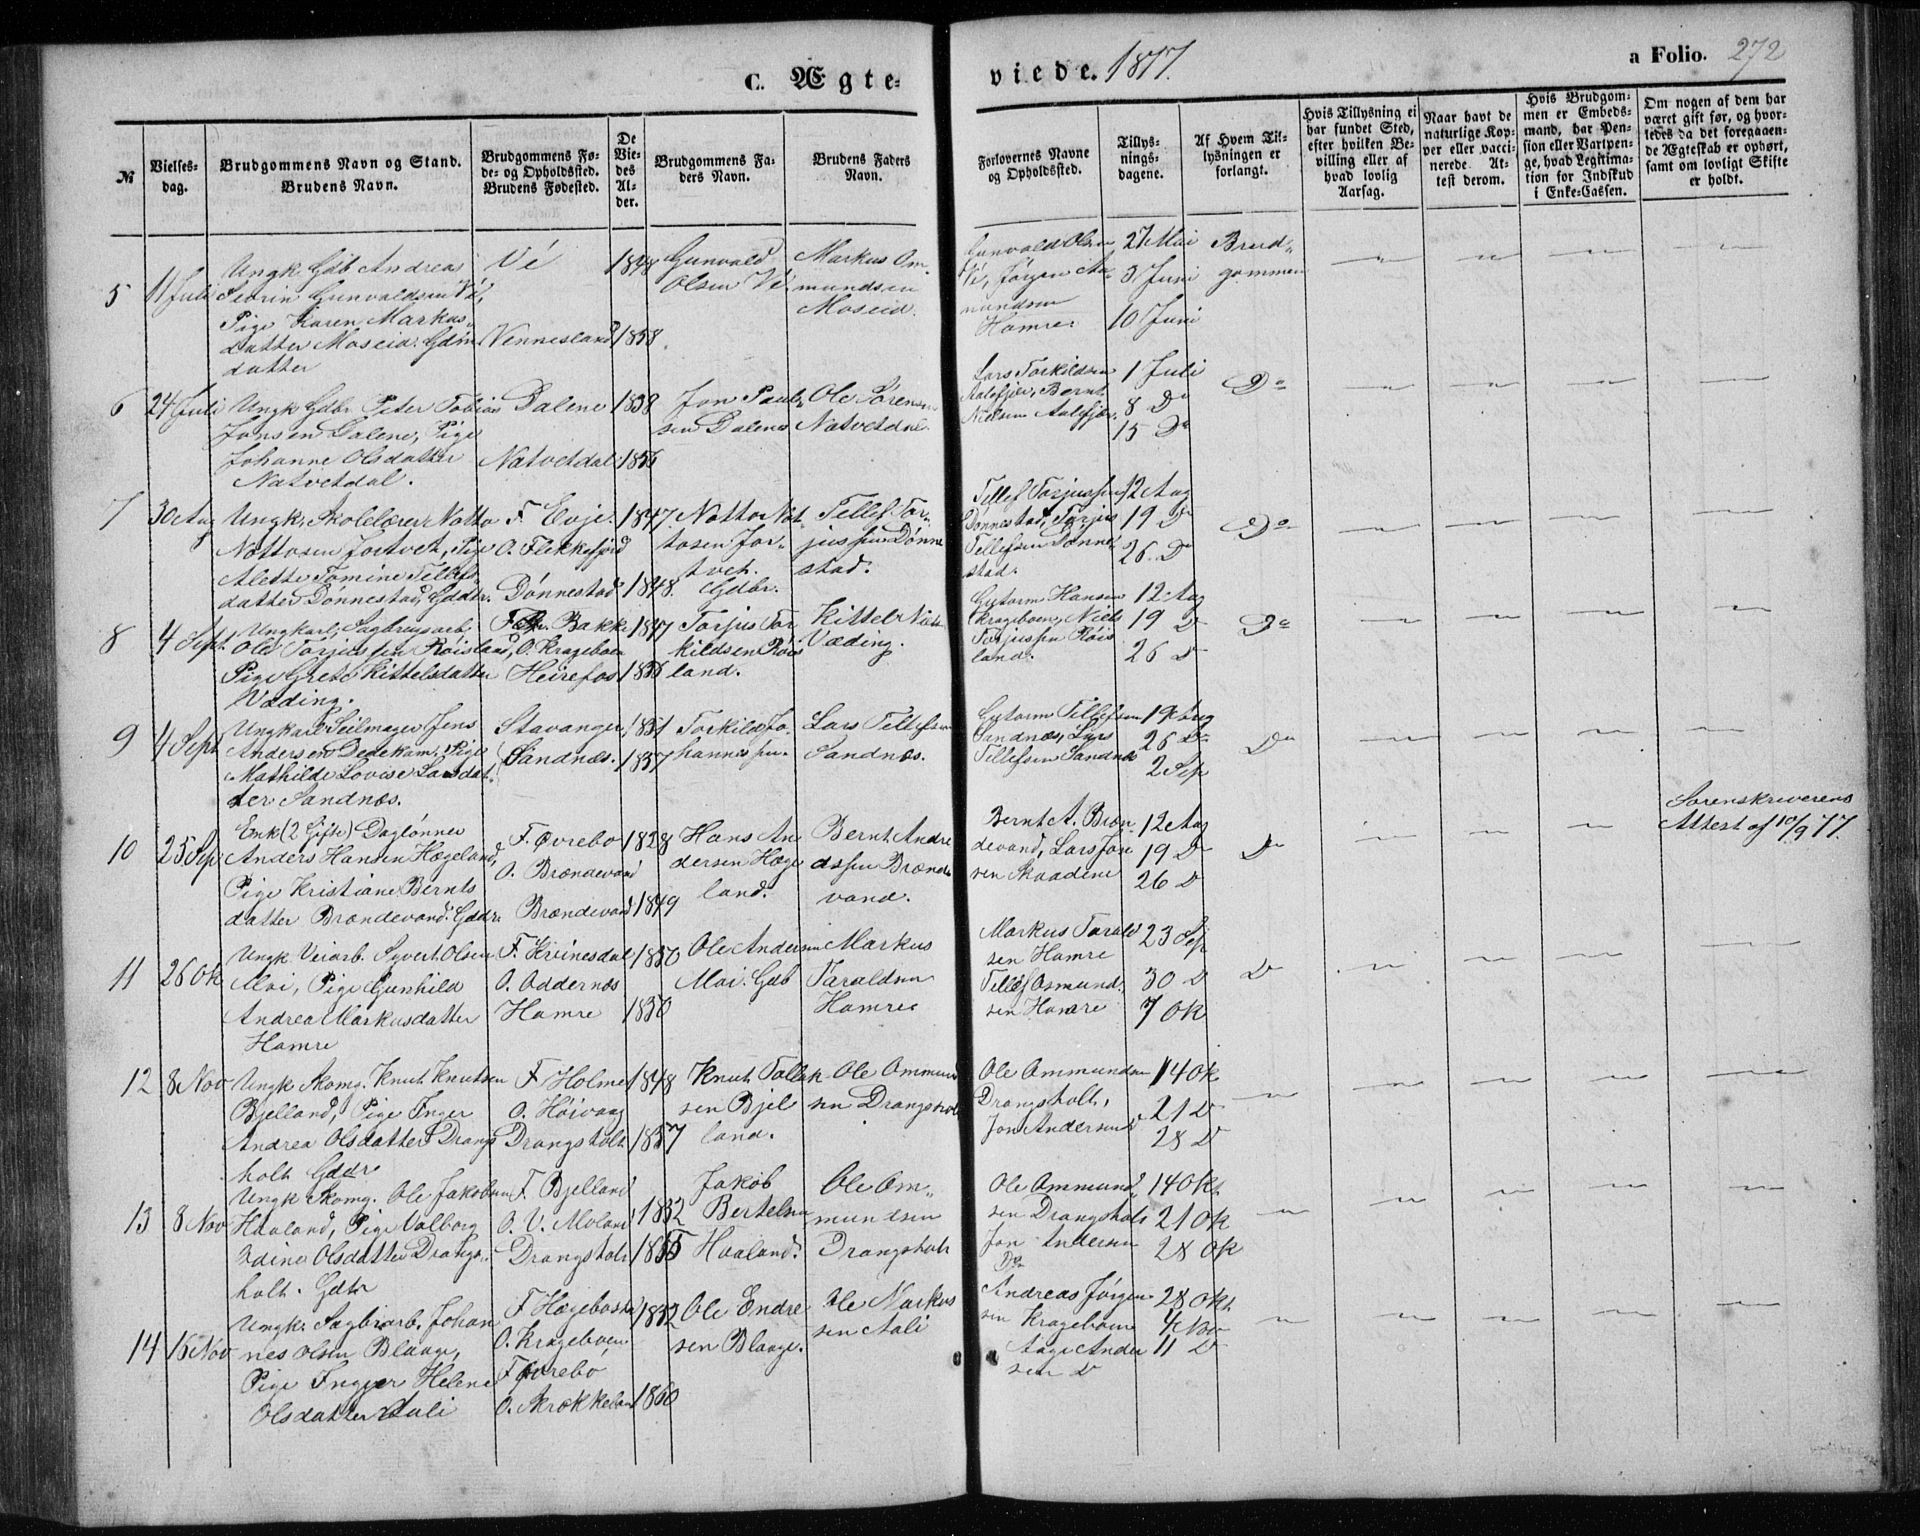 C. Ægte-
viede. 1877.
a Folio. 272
№
Vielses-
dag.
Brudgommens Navn og Stand.
Brudens Navn.
Brudgommens Fø-
de- og Opholdssted.
Brudens Fødested.
De
Vie-
des
Al-
der.
Brudgommens Fa-
ders Navn.
Brudens Faders
Navn.
Forlovernes Navne
og Opholdssted.
Tillys-
nings-
dagene.
Af Hvem Til-
lysningen er
forlangt.
Hvis Tillysning ei
har fundet Sted,
efter hvilken Be-
villing eller af
hvad lovlig
Aarsag.
Naar havt de
naturlige Kop-
per eller vacci-
nerede. At-
test derom.
Hvis Brudgom-
men er Embeds-
mand, har Pen-
sion eller Vartpen-
ge, hvad Legitima-
tion for Indskud
i Enke-Cassen.
Om nogen af dem har
været gift før, og hvor-
ledes da det foregaaen-
de Ægteskab er ophørt,
samt om lovligt Skifte
er holdt.
5
11 Juli
Ungk. Gdb Andreas
Severin Gunvaldsen Vé,
Pige Karen Markus-
datter Moseid. Gdm
datter
Vé
Vennesland
1848
1858
Gunvald
Olsen Vé
Markus Om-
mundsen
Moseid.
Gunvald Olsen
Vé, Jørgen Aa-
mundsen
Hamre
27 Mai
3 Juni
10 Juni
Brud-
gommen
6
24 Juli
Ungk. Gdbr. Peter Tobias
Jonsen Dalene, Pige
Johanne Olsdatter
Natvetdal.
Dalene
Natvetdal
1838
1856
Jon Paul-
sen Dalene
Ole Sørensen
Natvetdal
Lars Torkildsen
Aalefjær, Bernt
Nielsen Aalefjær.
1 Juli
8 Do
15 Do
Do
7
30 Aug
Ungk. Skolelærer Notto
Nottosen Jortvet, Pige
Alette Tomine Tellefs-
datter Dønnestad, Gddtr.
F. Evje.
O. Flekkefjord
Dønnestad
1847
1848
Notto Not-
tosen Jor-
tvet.
Gdbr.
Tellef Tor-
jussen Dønne
stad.
Tellef Torjussen
Dønnestad, Torjus
Tellefsen Dønne-
stad.
12 Aug
19 D
26 Do
Do
8
4 Sept.
Ungkarl, Sagbrugsarb.
Ole Torjussen Røisland,
Pige Grete Kittelsdatter
Væding.
Bakke
O. Krageboen
Heirefos
1847
1856
Torjus Tor
kildsen Røis
land.
Kittel Niels
Væding.
Gutorm Hansen
Krageboen, Niels
Torjussen Røis
land.
12 Aug
19 D
26 D
Do
9
4 Sept
Ungkarl Seilmager Jens
Andersen Dedekam, Pige
Mathilde Lovise Larsdat-
ter Sandnæs.
Stavanger,
Sandnæs.
1851
1857
Torkild Jo-
hannessen
Lars Tellefsen
Sandnæs.
Gutorm Tellefsen
Sandnæs, Lars
Tellefsen Sandnæs
19 Aug
26 Do
2 Sep
Do
10
25 Sep
Enk (2 Gifte) Daglønner
Anders Hansen Hægeland,
Pige Kristiane Bernts
datter Brændevand. Gddr.
F. Øvrebo
O. Brændevand
Brændevand
1828
1849
Hans An
dersen Hæge
land.
Bernt Andre
assen Brænde
vand.
Bernt A. Bræn-
devand, Lars Jon
sen Skaadene
12 Aug
19 D
26 D
Do
Sorenskriverens
Attest af 10/9 77.
11
26 Ok
Ungk Veiarb. Syvert Olsen
Moi, Pige Gunhild
Andrea Markusdatter
Hamre
F. Kvinesdal
O. Oddernæs
Hamre
1850
1850
Ole Andersen
Moi. Gdb
Markus
Taraldsen
Hamre
Markus Tarald
sen Hamre
Tellef Osmund-
sen Hamre
23 Sep
30 D
7 Ok
D
12
8 Nov
Ungk Skomg. Knut Knutsen
Bjelland, Pige Inger
Andrea Olsdatter Drangs
holt Gddr
F Holme
O. Høivaag
Drangsholt
1848
1857
Knut Tallak
sen Bjel
land.
Ole Ommund
sen Drangsholt
Ole Ommundsen
Drangsholt,
Jon Andersen
14 Ok
21 D
28 D
13
8 Nov
Ungk Skomg. Ole Jakobsen
Haaland, Pige Valborg
Edine Olsdatter Drangs-
holt. Gdtr
F. Bjelland
O. V. Moland
Drangsholt
1852
1855
Jakob
Bertelsen
Haaland.
Ole Om-
mundsen
Drangsholt
Ole Ommund-
sen Drangsholt
Jon Andersen
Do
14 Okt
21 Ok
28 Ok
14
16 Nov
Ungk. Sagbrarb. Johan
nes Olsen Blaage,
Pige Inger Helene
Olsdatter Aali
F Hægebostad
O. Krageboen
F Øvrebo
O. Skrækkeland
1852
1860
Ole Endre
sen Blaage.
Ole Markus
sen Aali
Andreas Jørgen
sen Krageboene
Aage Ander
sen D
28 Okt
4 Nov
11 D